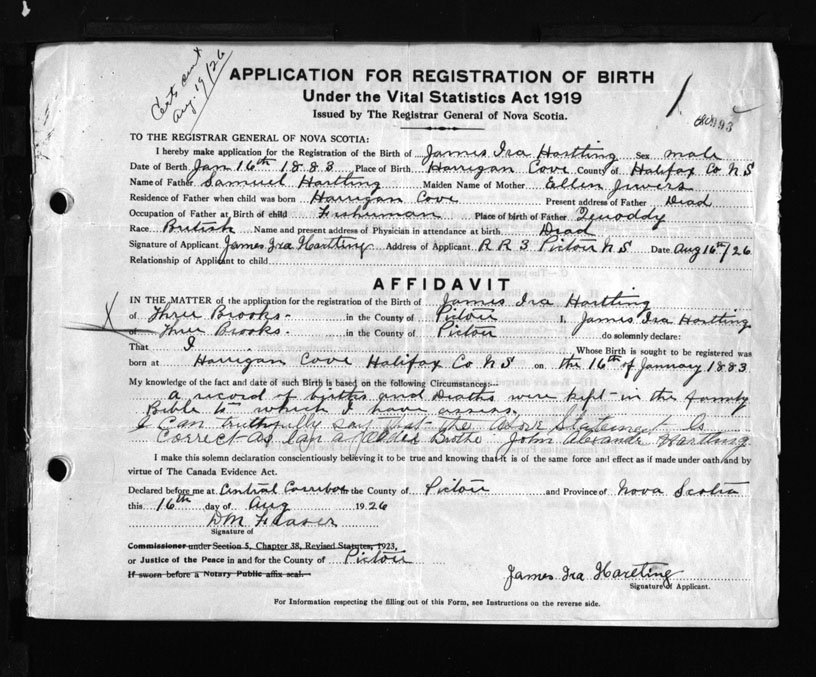 Cert sent
Aug. 19/26
APPLICATION FOR REGISTRATION OF BIRTH
Under the Vital Statistics Act 1919
Issued by The Registrar General of Nova Scotia.
TO THE REGISTRAR GENERAL OF NOVA SCOTIA:
I hereby make application for the Registration of the Birth of James Ira Hartling Sex male
Date of Berth Jan 16th 1883 Place of Birth Harrigan Cove County of Halifax Co N S
Name of Father Samuel Hartling Maiden Name of Mother Ellen Jewers
Residence of Father when child was born Harrigan Cove Present address of Father Dead
Occupation of Father at Birth of child Fisherman Place of birth of Father Quoddy
Race British Name and present address of Physician in attendance at birth Dead
Signature of Applicant James Ira Hartling Address of Applicant R R 3 Pictou N S Date Aug 16th/26
Relationship of Applicant to child
AFFIDAVIT
IN THE MATTER of the application for the registration of the Birth of James Ira Hartling
of Three Brooks in the County of Pictou I, James Ira Hartling
of Three Brooks in the County of Pictou do solemnly declare:
That I Whose Birth is sought to be registered was
born at Harrigan Cove Halifax Co N S on the 16th of January 1883
My knowledge of the fact and date of such Birth is based on the following Circumstances:—
a record of births and Deaths were kept in the family
Bible to which I have assess.
I Can truthfully say that the above Statement Is
Correct as I am a Older Brother John Alexander Hartling
I make this solemn declaration conscientiously believing it to be true and knowing that it is of the same force and effect as if made under oath and by
virtue of The Canada Evidence Act.
Declared before me at Central Caribou the County of Pictou and Province of Nova Scotia
this 16th day of Aug 1926
D M Fraser
Signature of
Commissioner under Section 5, Chapter 38, Revised Statutes, 1923,
or Justice of the Peace in and for the County of Pictou
If sworn before a Notary Public affix seal.
James Ira Hartling
Signature of Applicant.
For Information respecting the filling out of this Form, see Instructions on the reverse side.